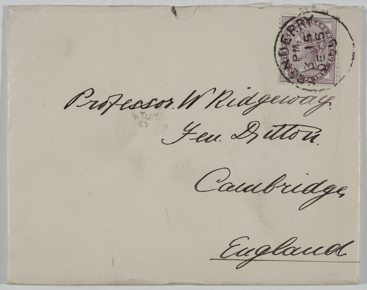 LONDONDERRY
PM
DE 15
Professor W Ridgeway.
Fen Ditton.
Cambridge,
England